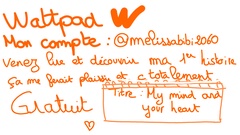 Wattpad W
Mon compte : @melissabbi2060
Venez lire et découvrir ma 1ère histoire
ça me ferait plaisir et c totalement
Gratuit
Titre : My mind and
your heart